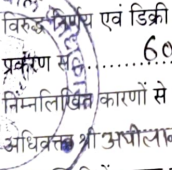 विरुद्ध निर्णय एवं डिक्री
प्रकरण सं..........60
निम्नलिखित कारणों से
अधिवक्ता श्री अपीला